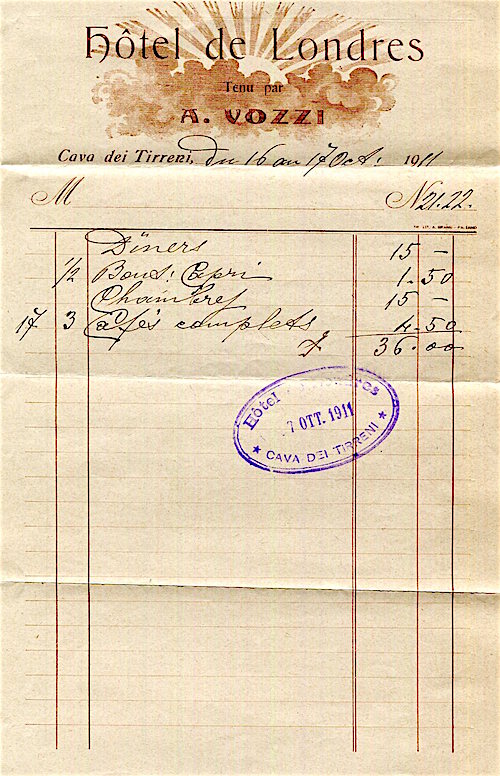 Hôtel de Londres
Tenu par
A. VOZZI
Cava dei Tirreni, du 16 au 17 Oct. 1911
M N 21.22.
Dîners 15 –
1/2 Bout: Capri 1.50
Chambres 15 –
17 3 Cafés complets 4.50
36.00
Hôtel Londres
7 OTT. 1911
★ CAVA DEI TIRRENI ★